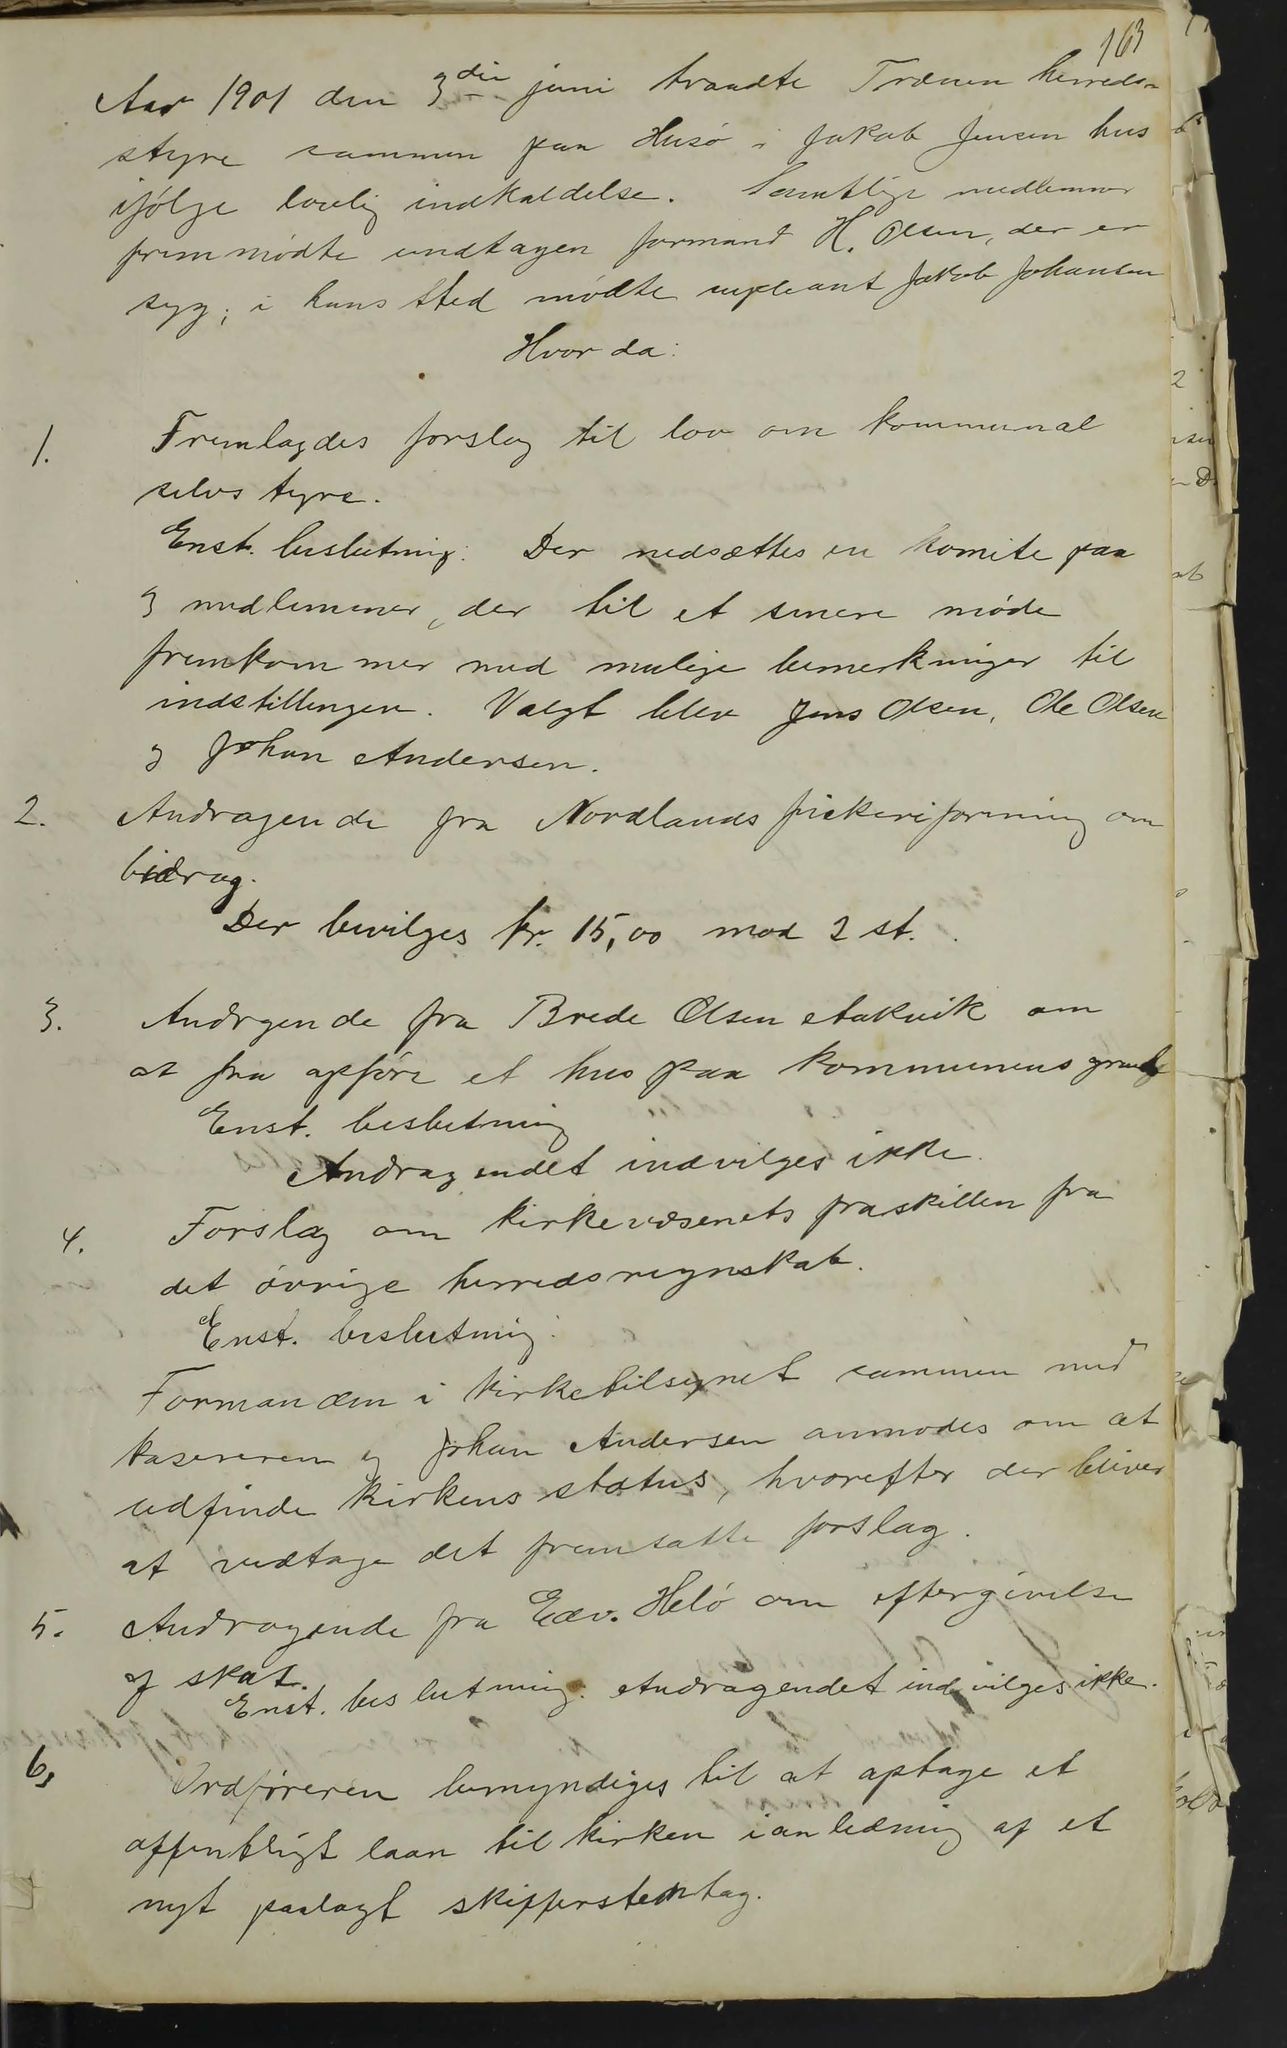 163
Aar 1901 den 3die juni traadte Trænen herreds-
styre sammen paa Husö i Jakob Jensen hus
ifölge lovlig indkaldelse. Samtlige medlemmer
fremmödte undtagen formand H. Olsen, der er
syg; i hans sted mödte supleant Jakob Johansen
Hvor da:
1. Fremlagdes forslag til lov om kommunal
selvstyre.
Enst. beslutning: Der nedsættes en komite paa
3 medlemmer, der til et senere möde
fremkommer med mulige bemerkninger til
indstillingen. Valgt blev Jens Olsen, Ole Olsen
og Johan Andersen.
2. Andragende fra Nordlands fiskeriforening om
bidrag.
Der bevilges kr. 15,00 mod 2 st.
3. Andrgende fra Brede Olsen Stakvik om
at faa opföre et hus paa kommunens grund
Enst. beslutning
Andragendet indvilges ikke.
4. Forslag om kirkevæsenets fraskillen fra
det övrige herredsregnskab.
Enst. beslutning:
Formanden i kirketilsynet sammen med
kasereren og Johan Andersen anmodes om at
udfinde kirkens status, hvorefter der bliver
at vedtage det fremsatte forslag.
5. Andragende fra Edv. Helö om eftergivelse
af skat.
Enst. beslutning: Andragendet indvilges ikke.
6, Ordföreren bemyndiges til at optage et
offentligt laan til kirken i anledning af et
nyt paalagt skifferstentag.